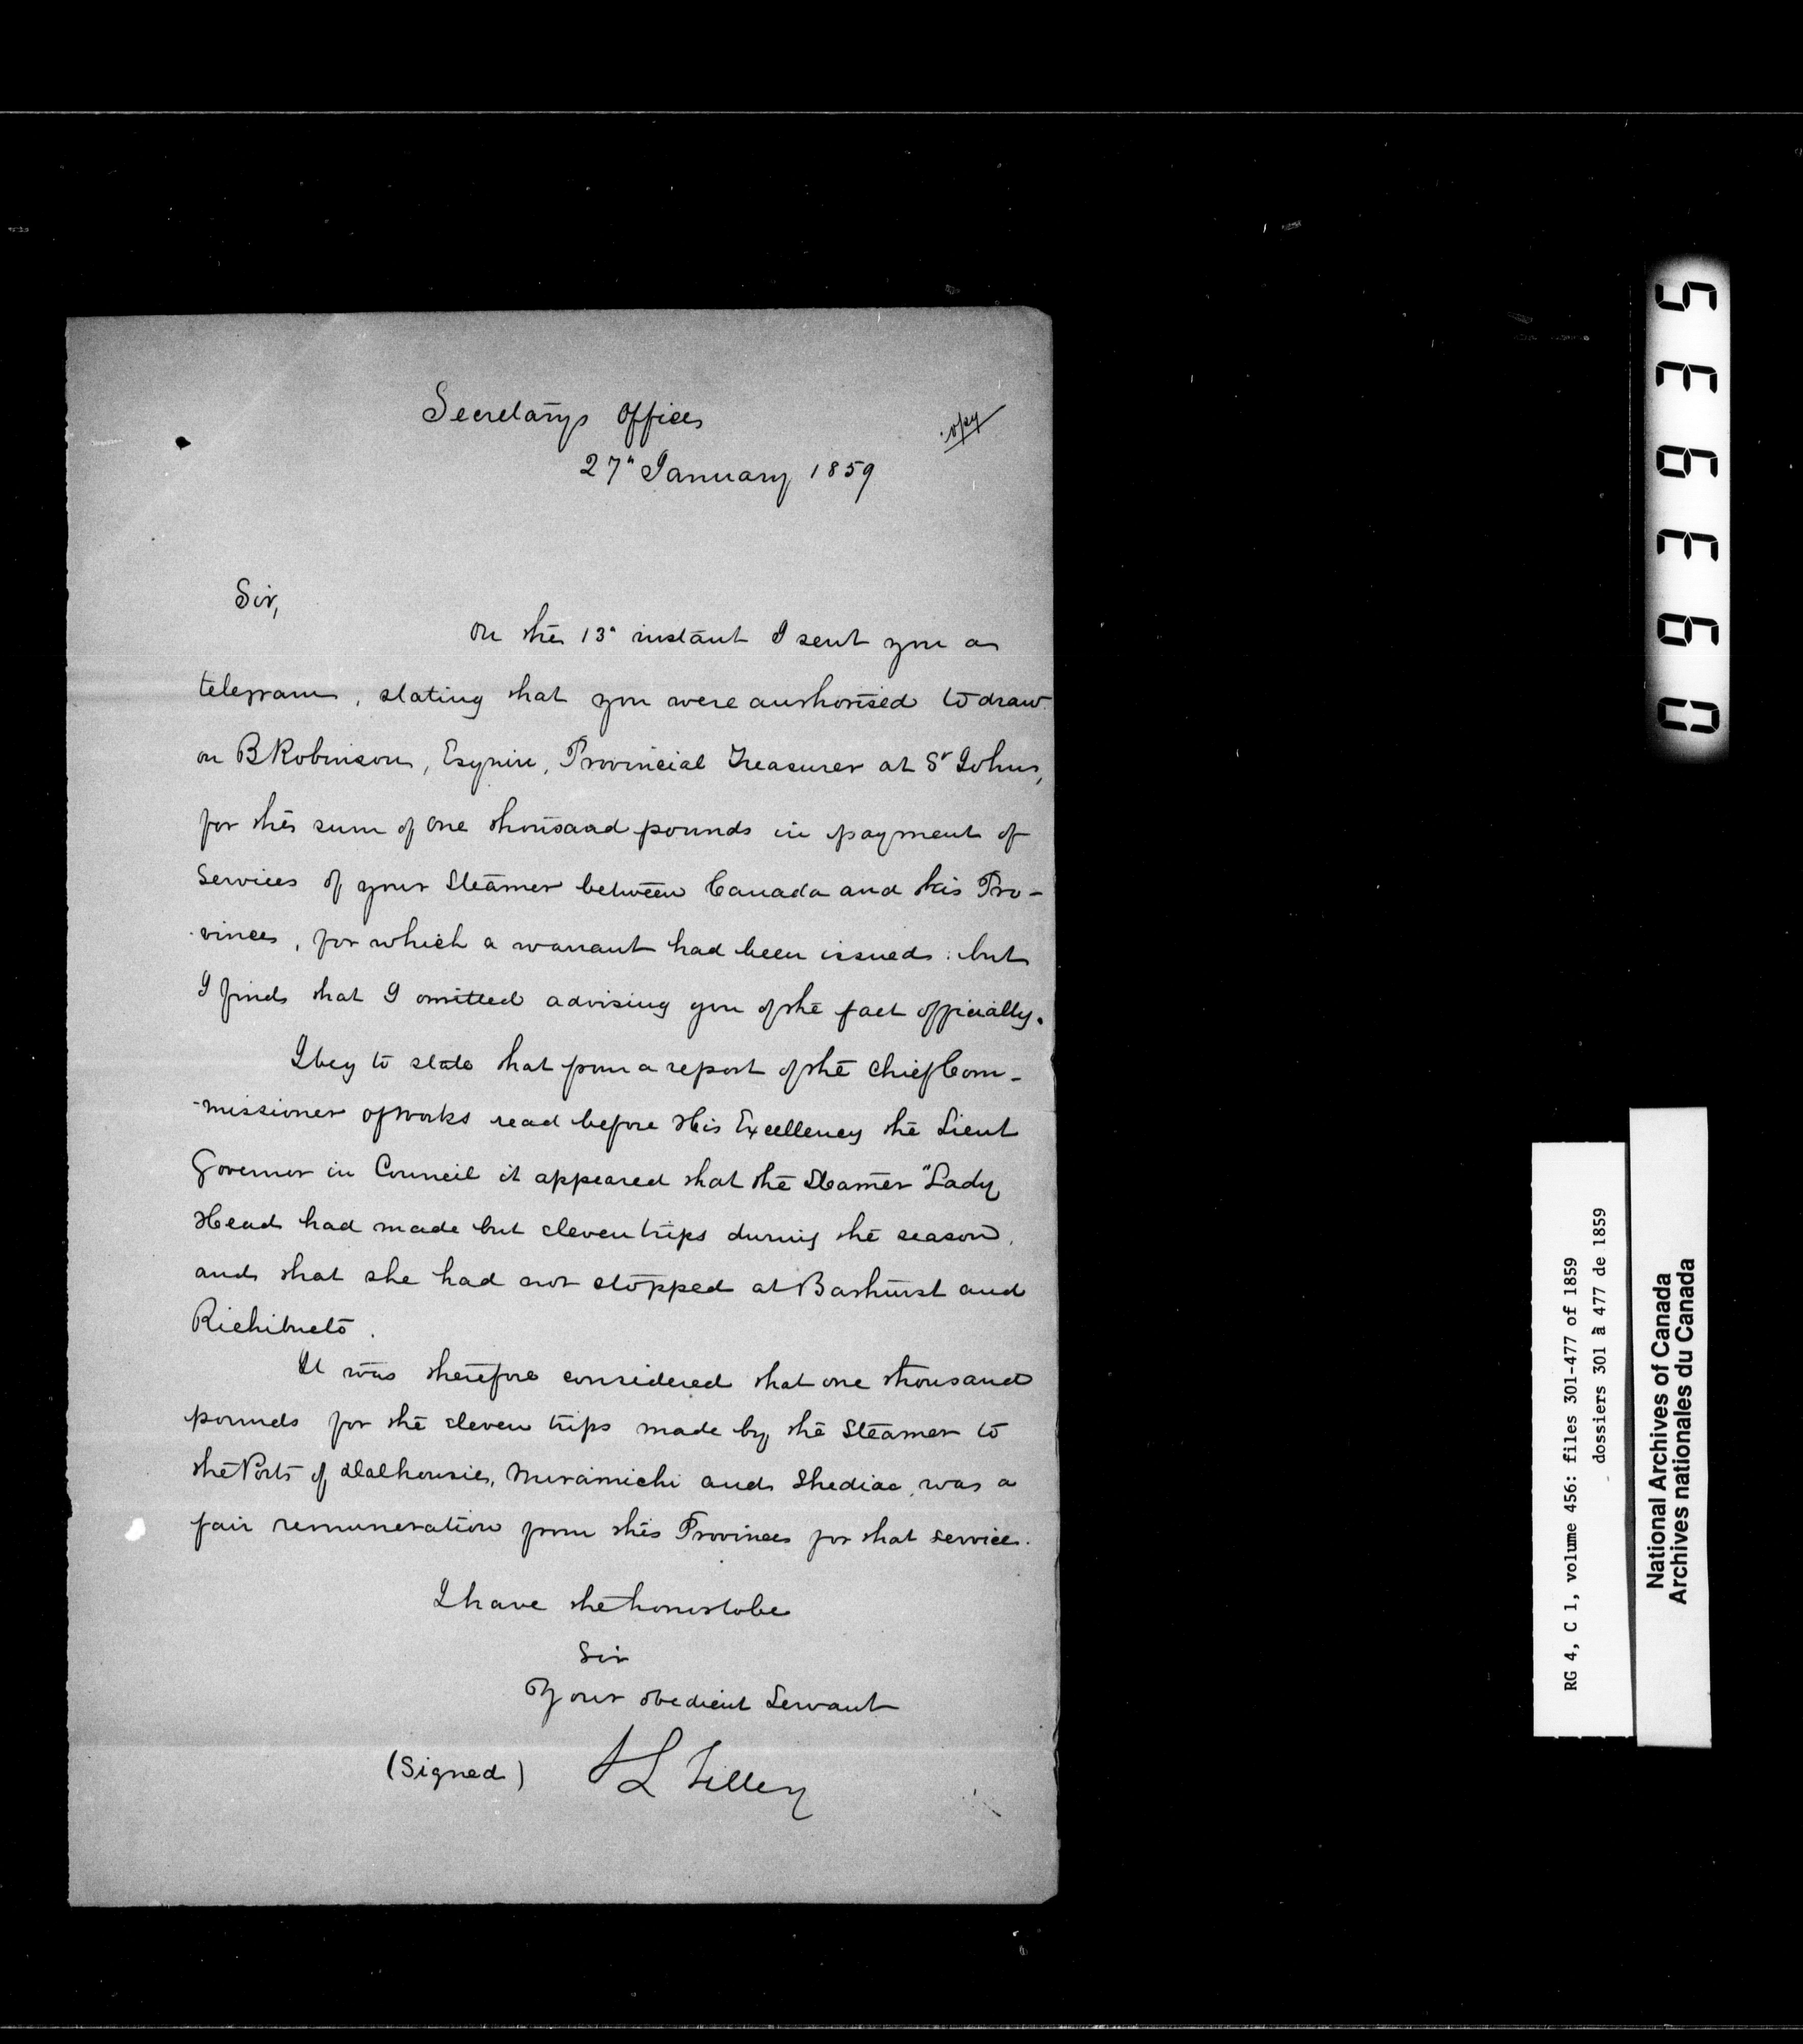 Secretary's Office
Copy
27" January 1859
Sir,
On the 13" instant I sent you a
telegram, stating that you were authorised to draw
on B Robinson, Esquire, Provincial Treasurer at St John,
for the sum of one thousand pounds in payment of
Services of your Steamer between Canada and this Pro-
-vince, for which a warrant had been issued: but
I find that I omitted advising you of the fact officially.
I beg to state that from a report of the Chief Com-
-missioner of Works read before His Excellency the Lieut
Governor in Council it appeared that the Steamer "Lady
Head had made but eleven trips during the season,
and that she had not stopped at Bathurst and
Richibucto.
It was therefore considered that one thousand
pounds for the eleven trips made by the Steamer to
the Ports of Dalhousie, Miramichi and Shediac, was a
fair remuneration from this Province for that service.
I have the honor to be
Sir
Your obedient Servant
(Signed) S L Tilley
536360
RG 4, C 1, volume 456: files 301-477 of 1859
dossiers 301 à 477 de 1859
National Archives of Canada
Archives nationales du Canada